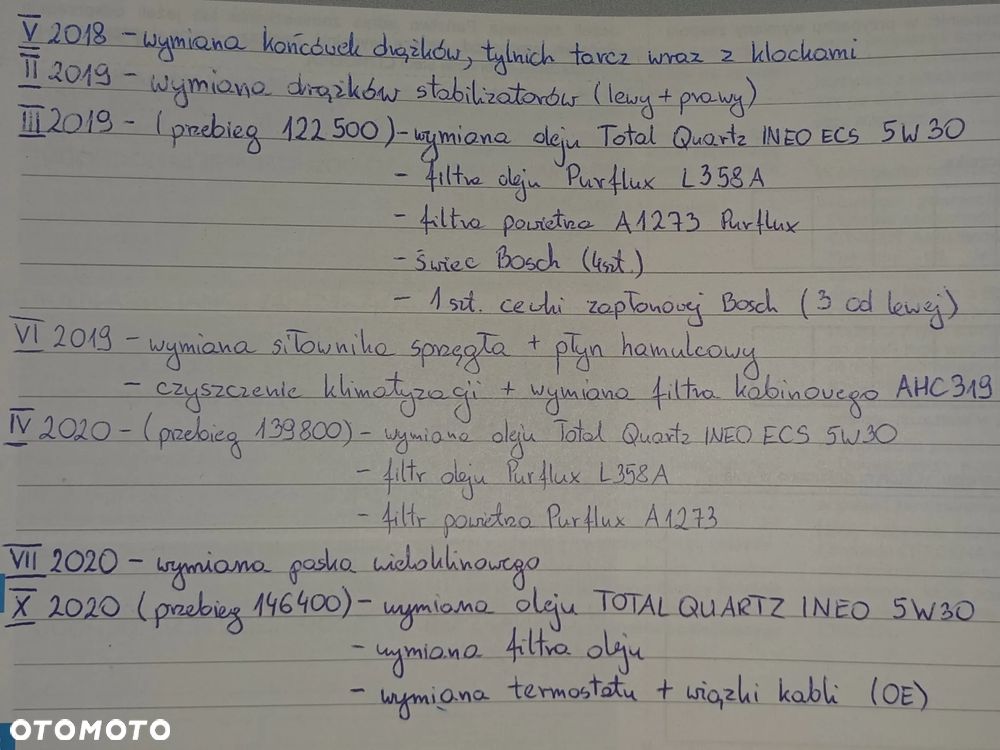 V 2018 - wymiana końcówek drążków, tylnich tarcz wraz z klockami
II 2019 - wymiana drążków stabilizatorów (lewy + prawy)
III 2019 - (przebieg 122 500) - wymiana oleju Total Quartz INEO ECS 5W30
- filtra oleju Purflux L358A
- filtra powietrza A1273 Purflux
- świec Bosch (4szt.)
- 1 szt. cewki zapłonowej Bosch (3 od lewej)
VI 2019 - wymiana siłownika sprzęgła + płyn hamulcowy
- czyszczenie klimatyzagji + wymiana filtra kabinowego AHC319
IV 2020 - (przebieg 139800) - wymiana oleju Total Quartz INEO ECS 5W30
- filtr oleju Purflux L358A
- filtr powietrza Purflux A1273
VII 2020 - wymiana paska wieloklinowego
X 2020 (przebieg 146400) - wymiana oleju TOTAL QUARTZ INEO 5W30
- wymiana filtra oleju
- wymiana termostatu + wiązki kabli (OE)
OTOMOTO